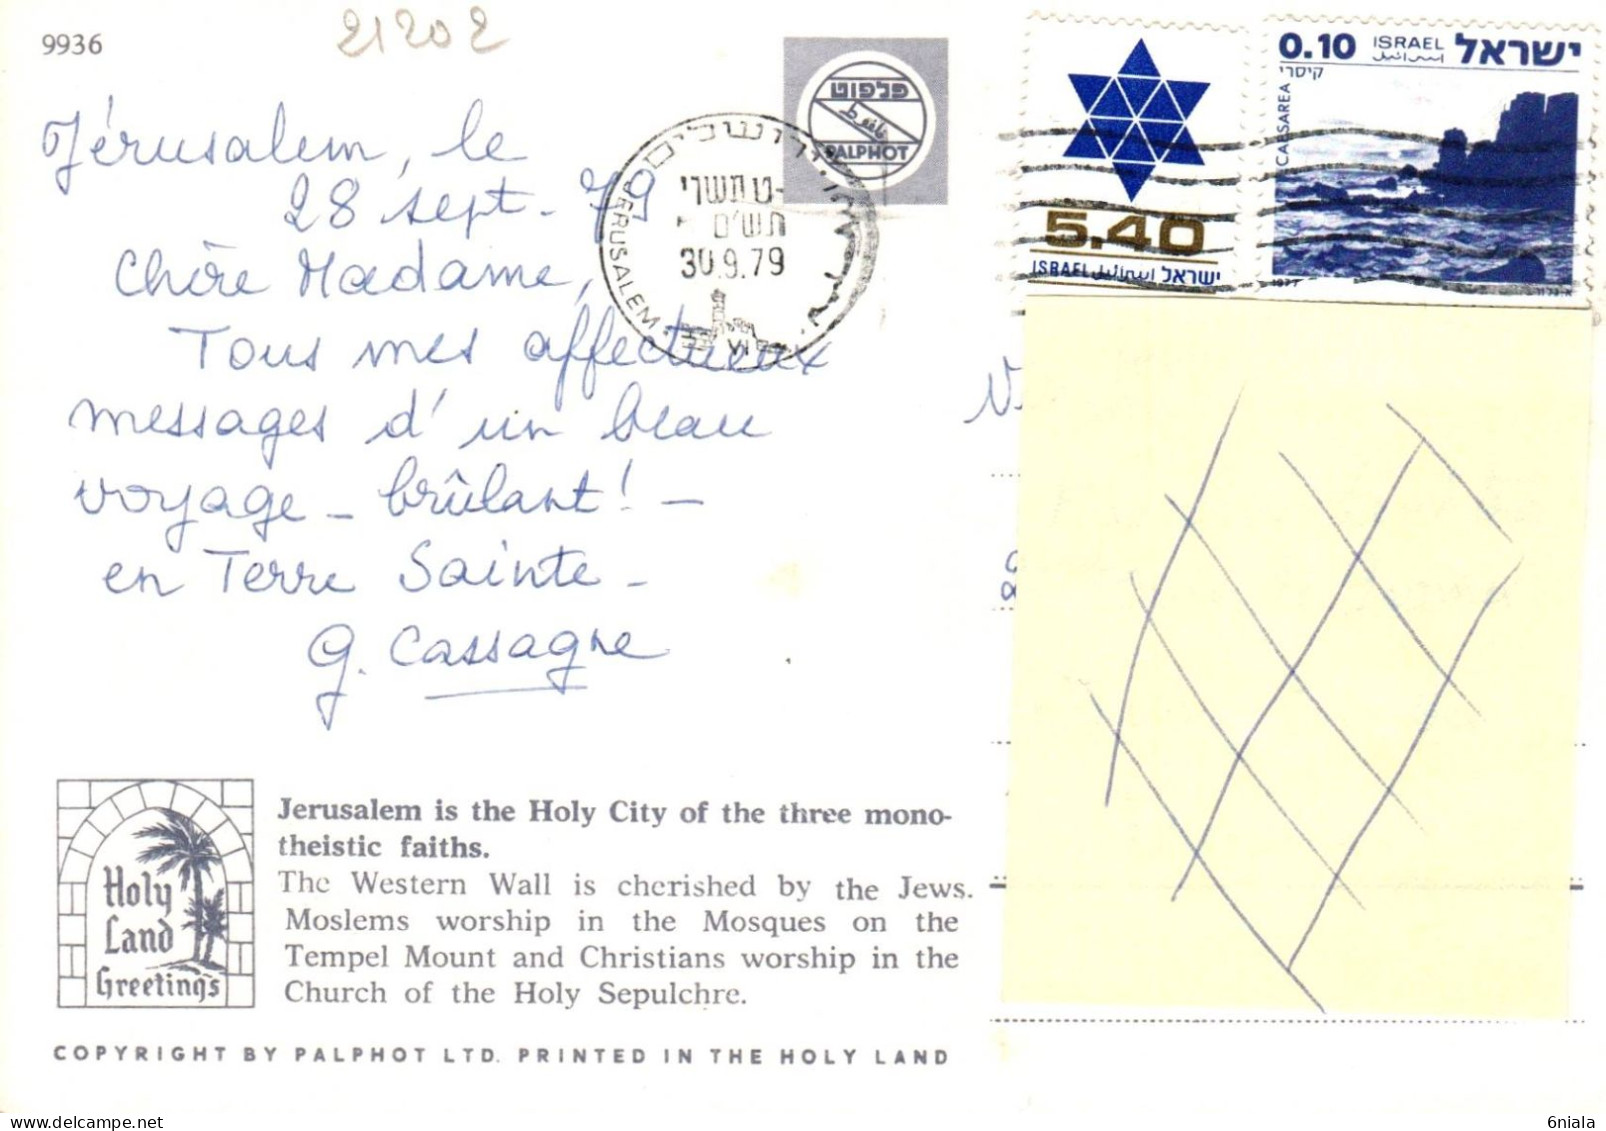 9936
21202
Jérusalem, le
28 sept. 79
Chère Madame,
Tous mes affectueux
messages d'un beau
voyage - brûlant! -
en Terre Sainte -
G. Cassagne
פלפוט
PALPHOT
ירושלים
ט תשרי
תש"ם
30.9.79
JERUSALEM
5.40
ISRAEL اسرائيل ישראל
0.10 ISRAEL اسرائيل ישראל
קיסרי
CAESAREA
1977
Holy
Land
Greetings
Jerusalem is the Holy City of the three mono-
theistic faiths.
The Western Wall is cherished by the Jews.
Moslems worship in the Mosques on the
Tempel Mount and Christians worship in the
Church of the Holy Sepulchre.
COPYRIGHT BY PALPHOT LTD. PRINTED IN THE HOLY LAND
6niala